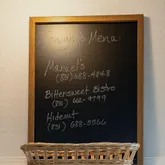 Menu
Manuel's
(831) 688-4848
Bittersweet Bistro
(831) 662-9799
Hideout
(831) 688-5566